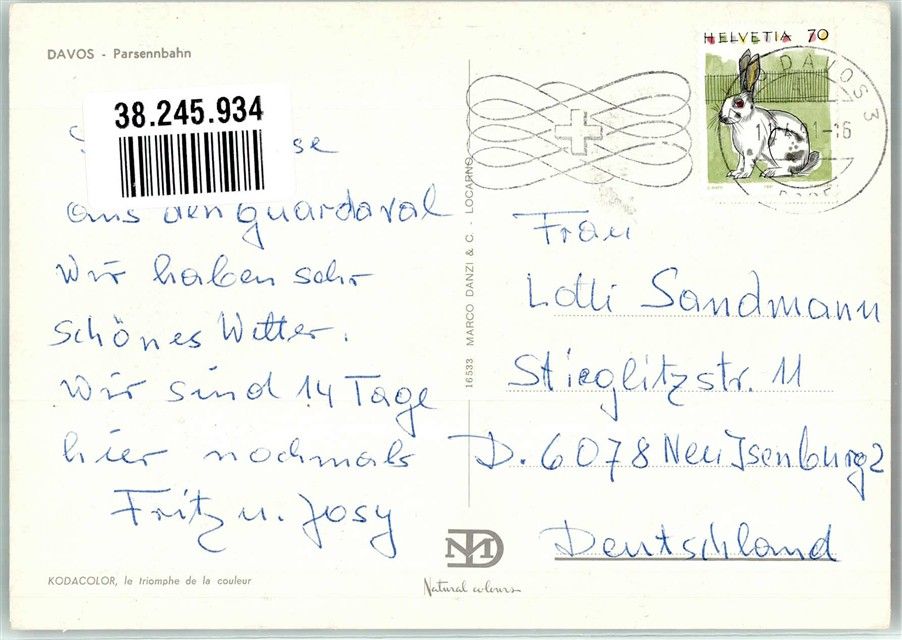 DAVOS - Parsennbahn
38.245.934
se
aus den guardaval
Wir haben sehr
schönes Wetter.
Wir sind 14 Tage
hier nochmals
Fritz u. Josy
KODACOLOR, le triomphe de la couleur
16533 MARCO DANZI & C. - LOCARNO
Natural colours
HELVETIA 70
DAVOS 3
Frau
Lotti Sandmann
Stieglitzstr. 11
D. 6078 Neu Isenburg 2
Deutschland